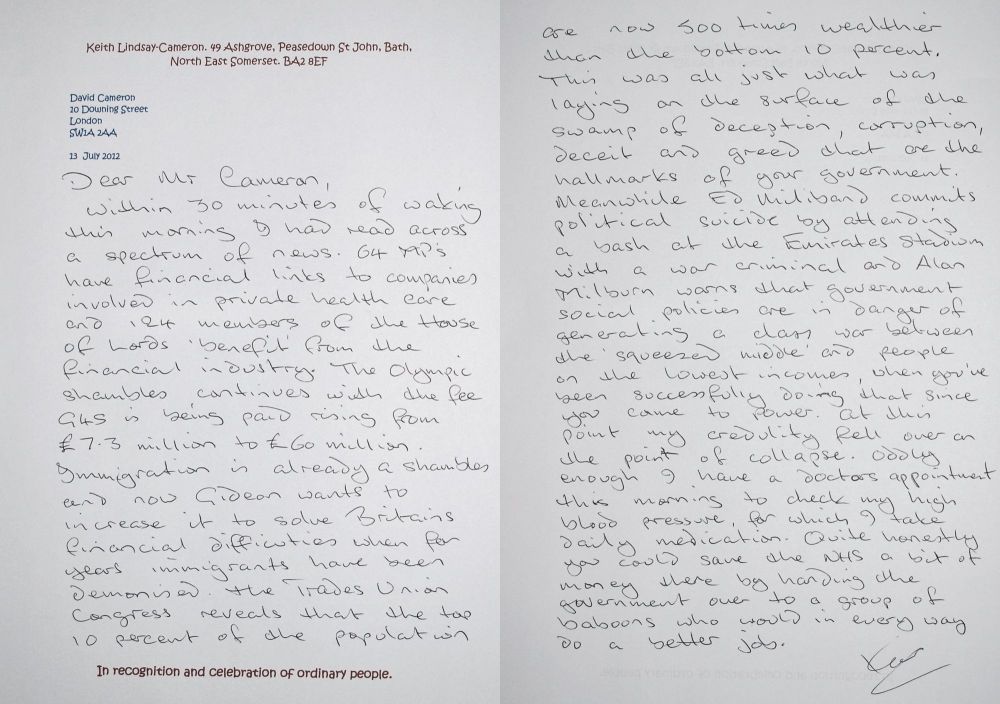 Keith Lindsay-Cameron. 49 Ashgrove, Peasedown St John, Bath,
North East Somerset. BA2 8EF
David Cameron
10 Downing Street
London
SW1A 2AA
13 July 2012
Dear Mr Cameron,
within 30 minutes of waking
this morning I had read across
a spectrum of news. 64 MP's
have financial links to companies
involved in private health care
and 124 members of the House
of Lords 'benefit' from the
financial industry. The Olympic
shambles continues with the fee
G4S is being paid rising from
£7.3 million to £60 million.
Immigration is already a shambles
and now Gideon wants to
increase it to solve Britains
financial difficulties when for
years immigrants have been
demonised. The Trades Union
Congress reveals that the top
10 percent of the population
In recognition and celebration of ordinary people.
are now 500 times wealthier
than the bottom 10 percent.
This was all just what was
laying on the surface of the
swamp of deception, corruption,
deceit and greed that are the
hallmarks of your government.
Meanwhile Ed Miliband commits
political suicide by attending
a bash at the Emirates Stadium
with a war criminal and Alan
Milburn warns that government
social policies are in danger of
generating a class war between
the 'squeezed middle' and people
on the lowest incomes, when you've
been successfully doing that since
you came to power. At this
point my credulity fell over on
the point of collapse. Oddly
enough I have a doctors appointment
this morning to check my high
blood pressure, for which I take
daily medication. Quite honestly
you could save the NHS a bit of
money there by handing the
government over to a group of
baboons who would in every way
do a better job.